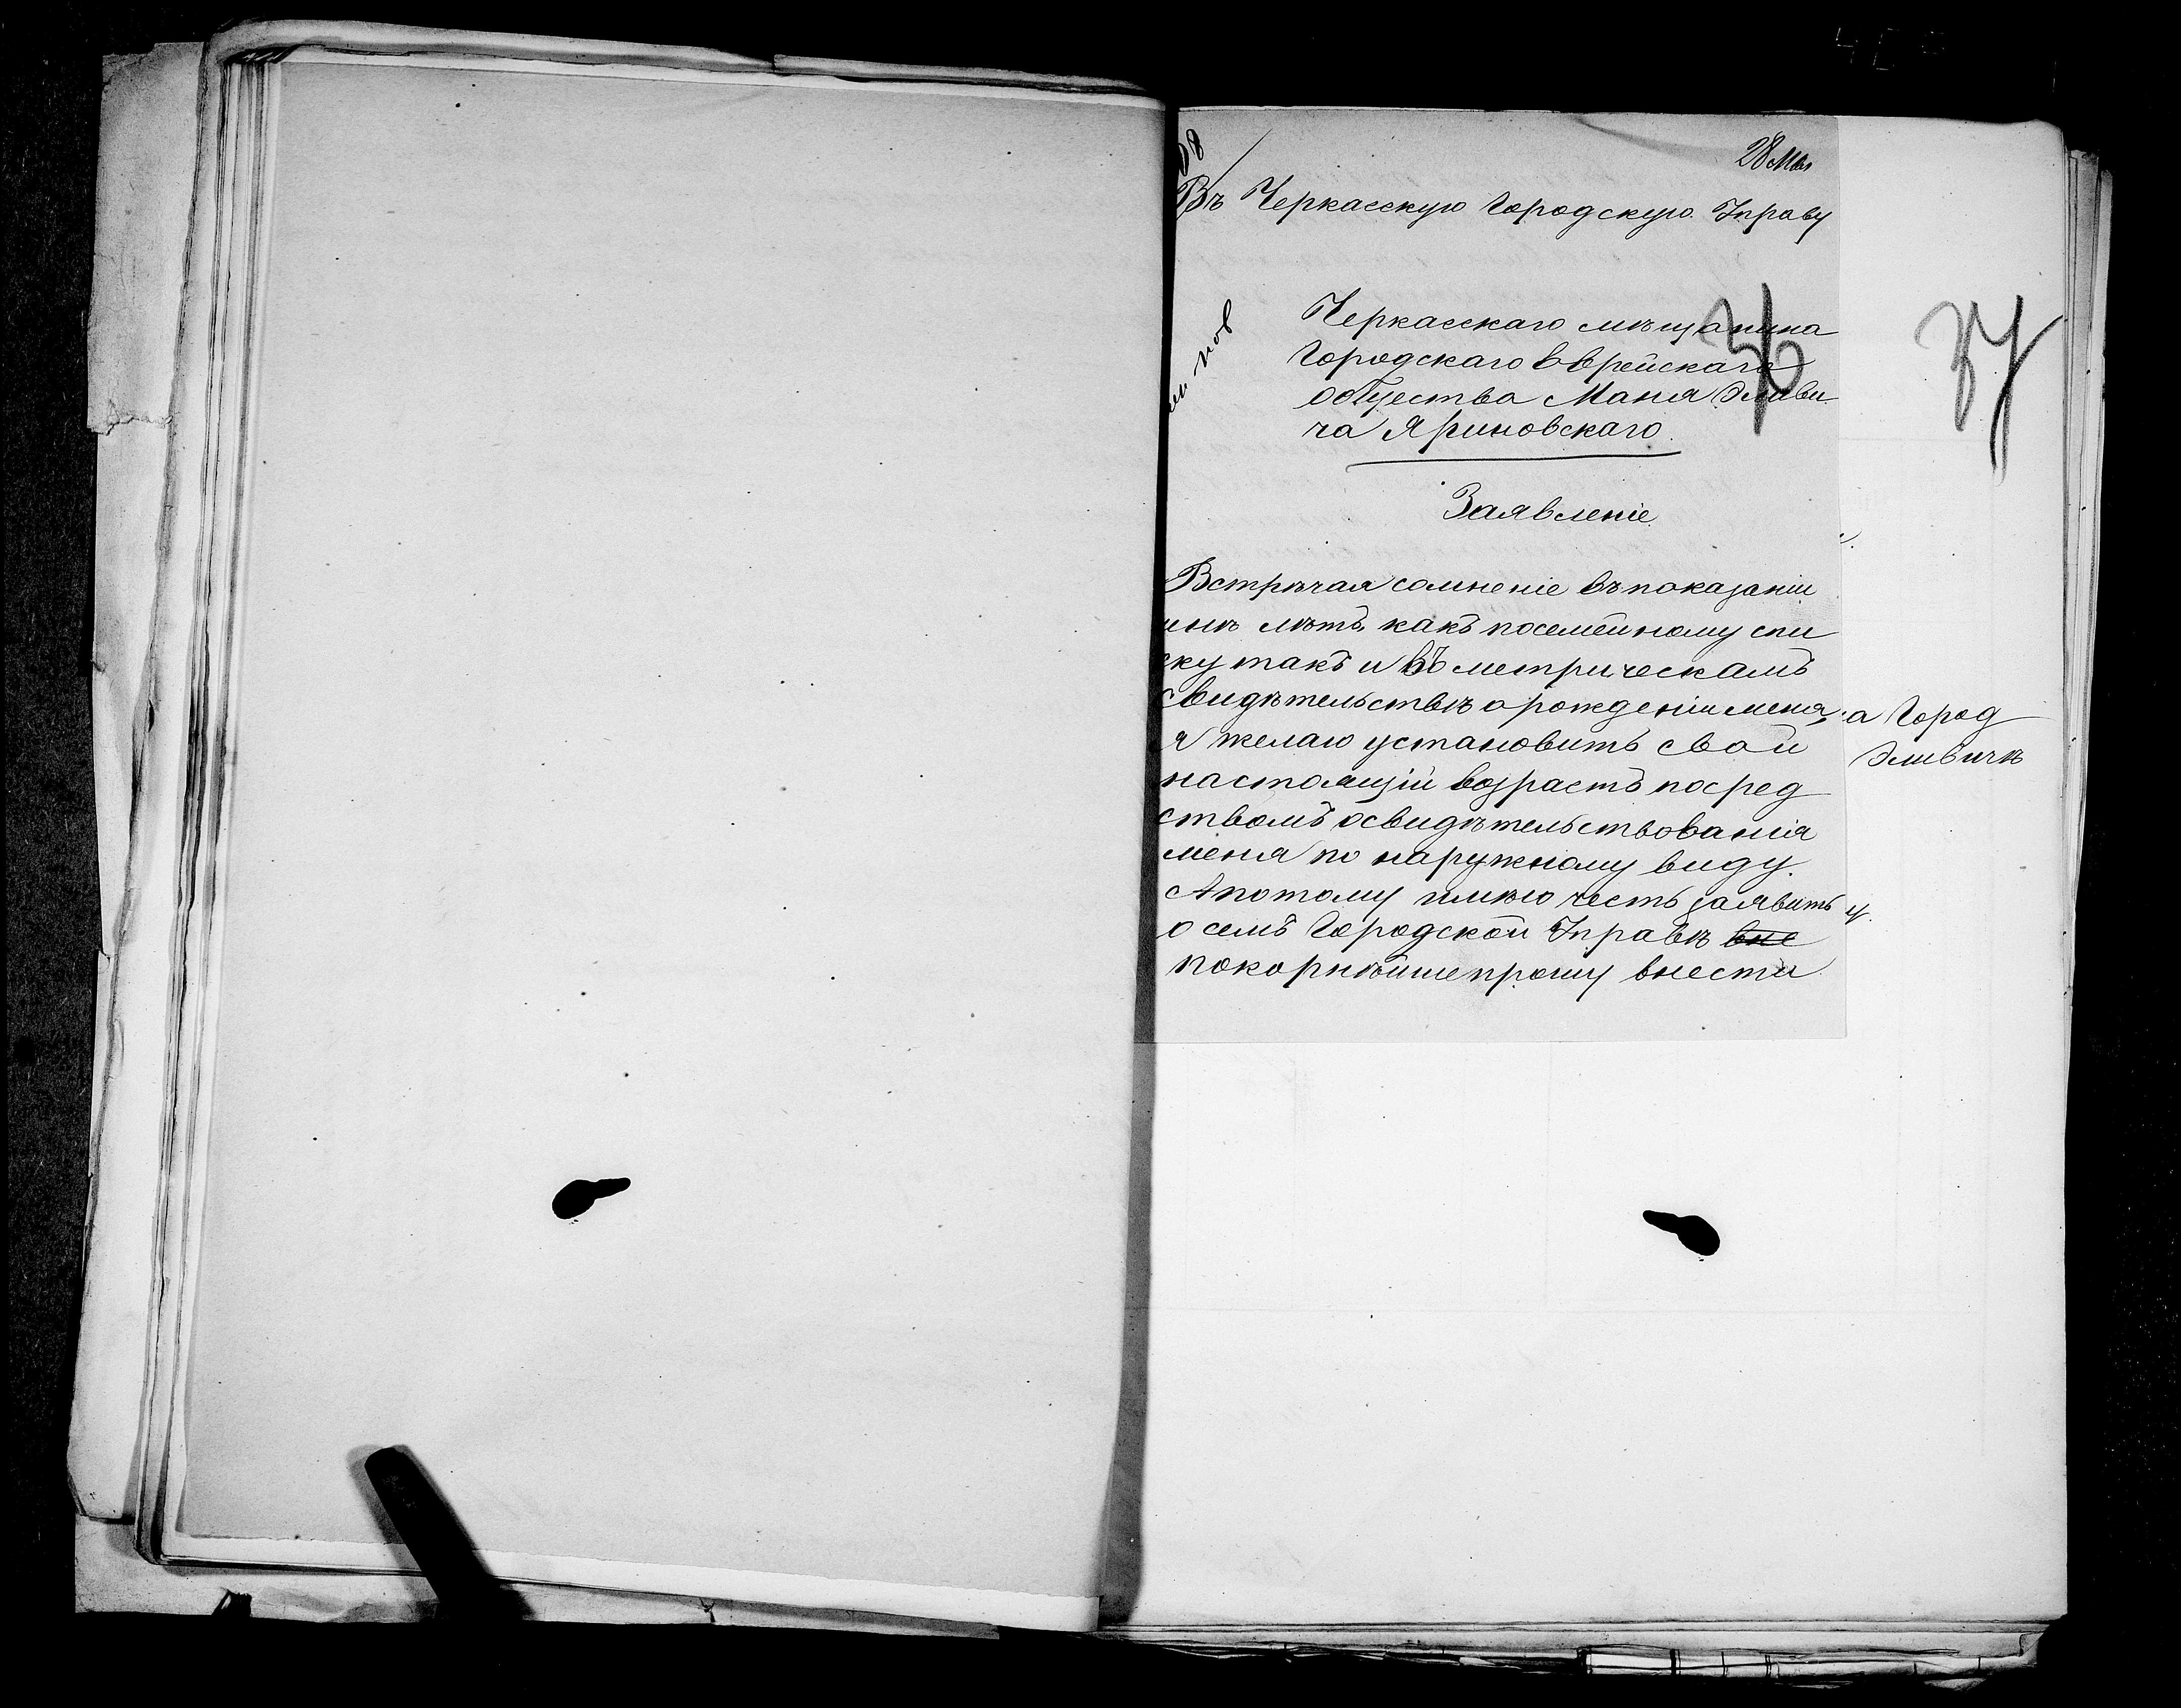 28 Мая
Въ Черкасскую Городскую Управу
36
37
Черкасскаго мѣщанина
Городскаго Еврейскаго
общества Маня Эливи
ча Яриновскаго.
Заявленіе
Встрѣчая сомненіе въ показаніи
мнѣ лѣтъ какъ посемейному спи
ску такъ и въ метрическамъ
свидѣтельствѣ о рожденіи меня,
я желаю установить свой
настоящій возрастъ посред
ствомъ освидѣтельствованія
меня по наружному виду.
А потому имѣю честь заявить
о семъ Городской Управѣ вне
покорнѣйше прошу внести
а Город
Эливичѣ